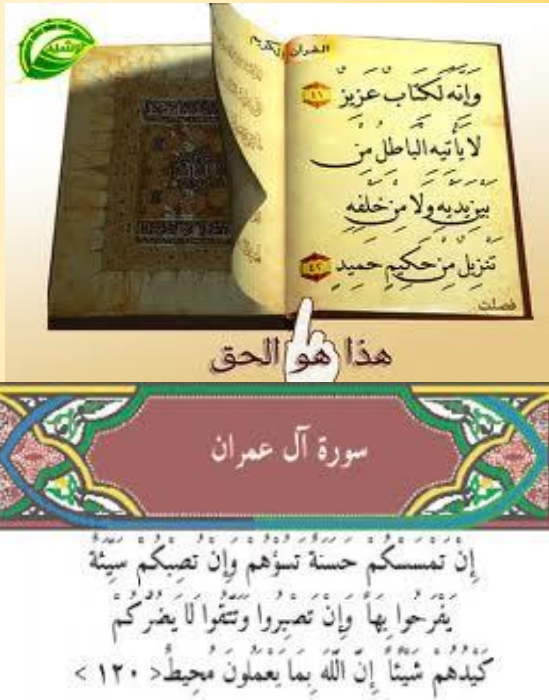 نوشته
القرآن الكريم
وَإِنَّهُ لَكِتَابٌ عَزِيزٌ ٤١
لَا يَأْتِيهِ الْبَاطِلُ مِنْ
بَيْنِ يَدَيْهِ وَلَا مِنْ خَلْفِهِ
تَنْزِيلٌ مِنْ حَكِيمٍ حَمِيدٍ ٤٢
فصلت
هذا هو الحق
سورة آل عمران
إِنْ تَمْسَسْكُمْ حَسَنَةٌ تَسُؤْهُمْ وَإِنْ تُصِبْكُمْ سَيِّئَةٌ
يَفْرَحُوا بِهَا وَإِنْ تَصْبِرُوا وَتَتَّقُوا لَا يَضُرُّكُمْ
كَيْدُهُمْ شَيْئًا إِنَّ اللَّهَ بِمَا يَعْمَلُونَ مُحِيطٌ < ١٢٠ >